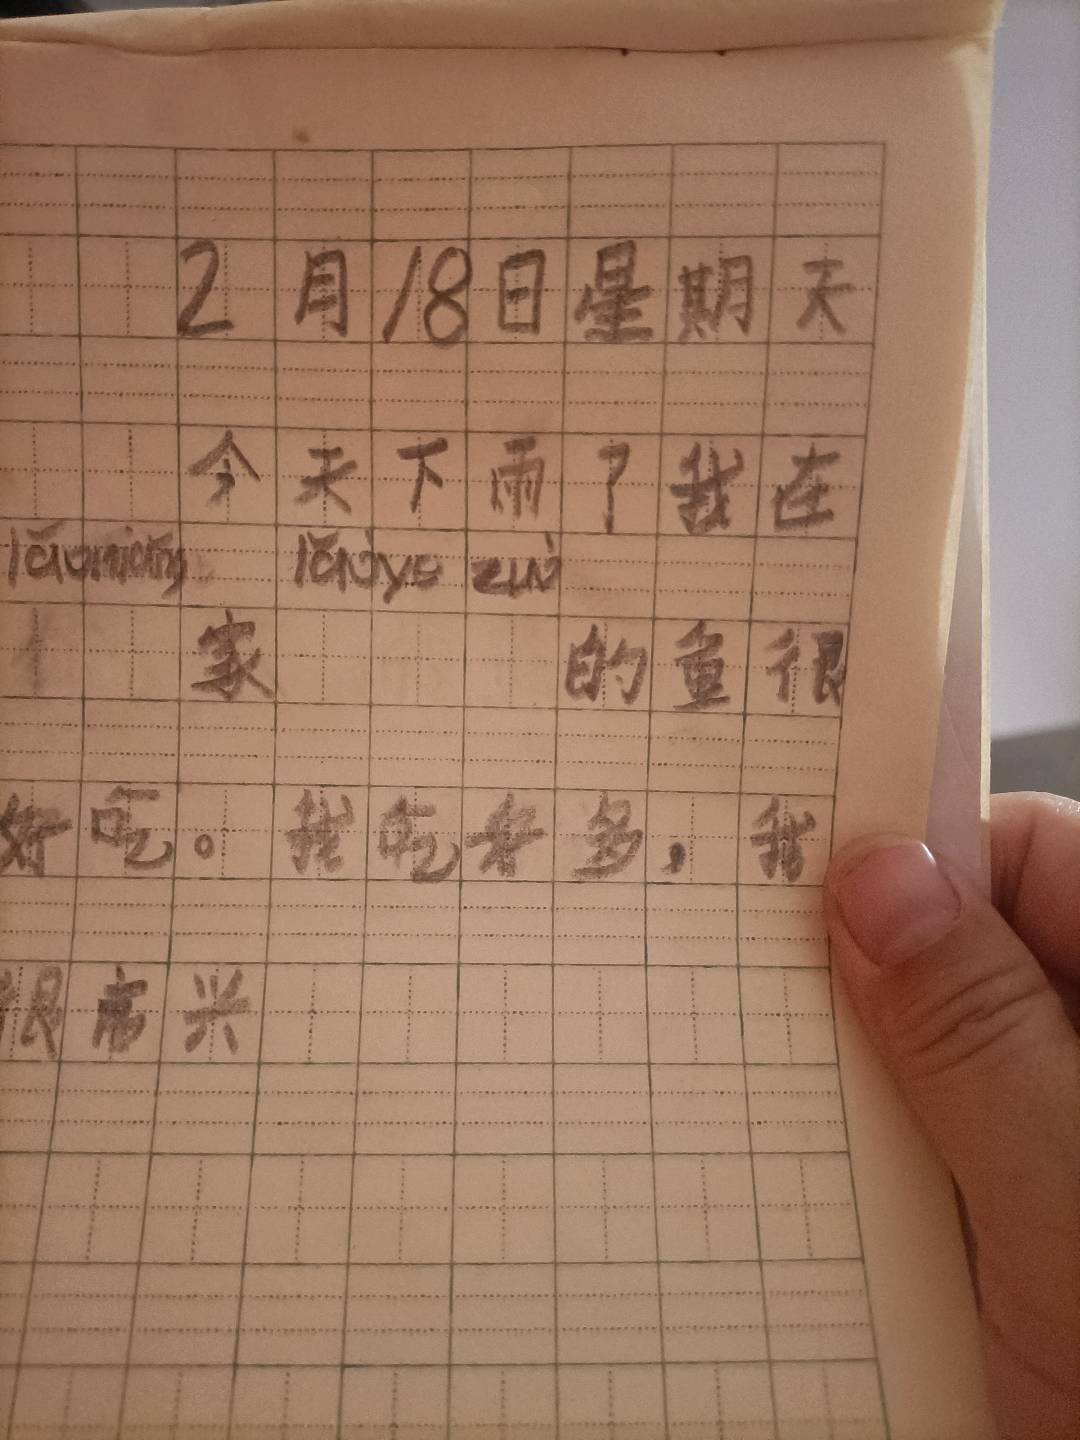 2月18日星期天
今天下雨了我在
lǎomiàng lǎoye zuò
家的鱼很
好吃。我吃好多,我
很高兴